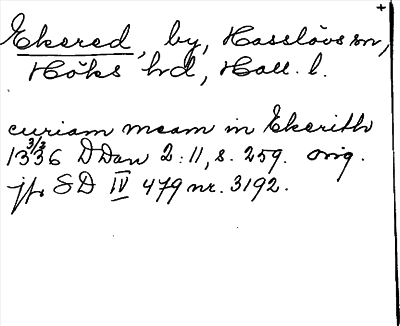 +
Ekered, by, Hasslövs sn,
Höks hd, Hall. l.
curiam meam in Ekerith
3/3 1336 DDan 2:11, s. 259. orig.
jfr SD IV 479 nr. 3192.